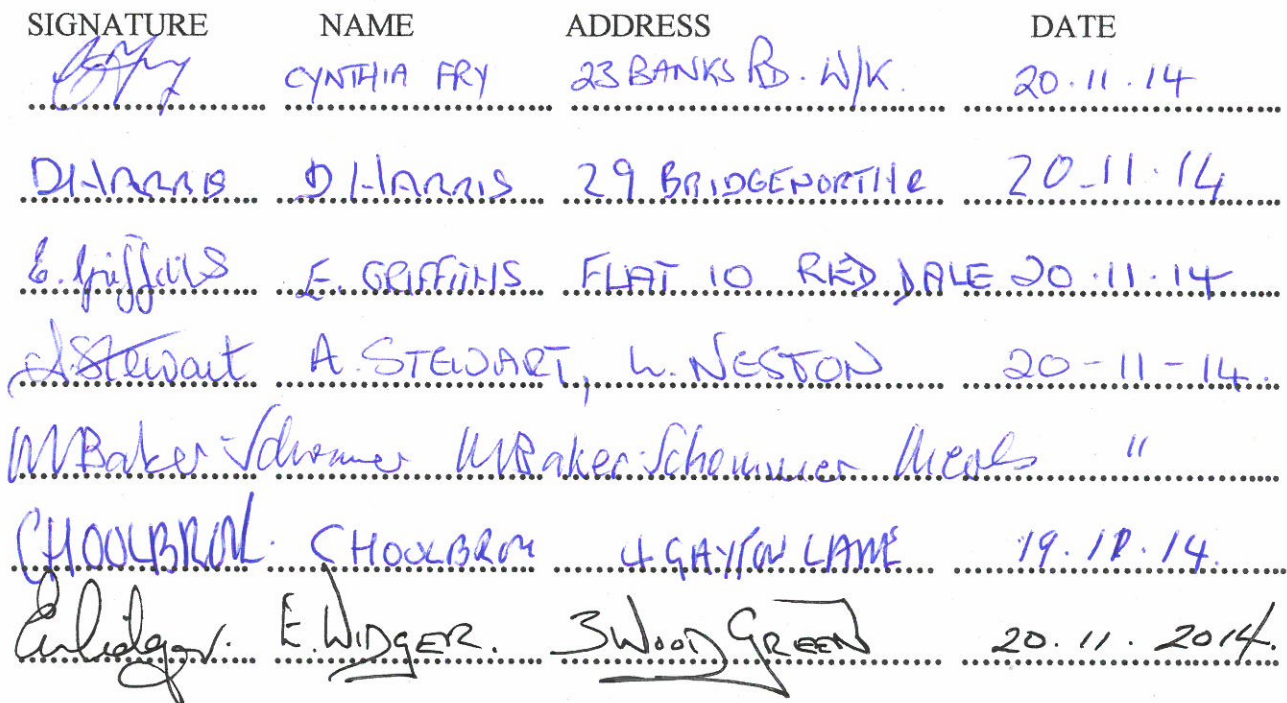 SIGNATURE NAME ADDRESS DATE
CYNTHIA FRY 23 BANKS RD. W/K. 20.11.14
D HARRIS D HARRIS 29 BRIDGENORTH R 20.11.14
E. Griffiths E. GRIFFITHS FLAT 10 RED DALE 20.11.14
A. Stewart A. STEWART, L. NESTON 20-11-14.
M Baker-Schommer M Baker-Schommer Meols "
C HOOLBROM 4 GAYTON LANE 14.
E Widger. E. WIDGER. 3 WOOD GREEN 20.11.2014.